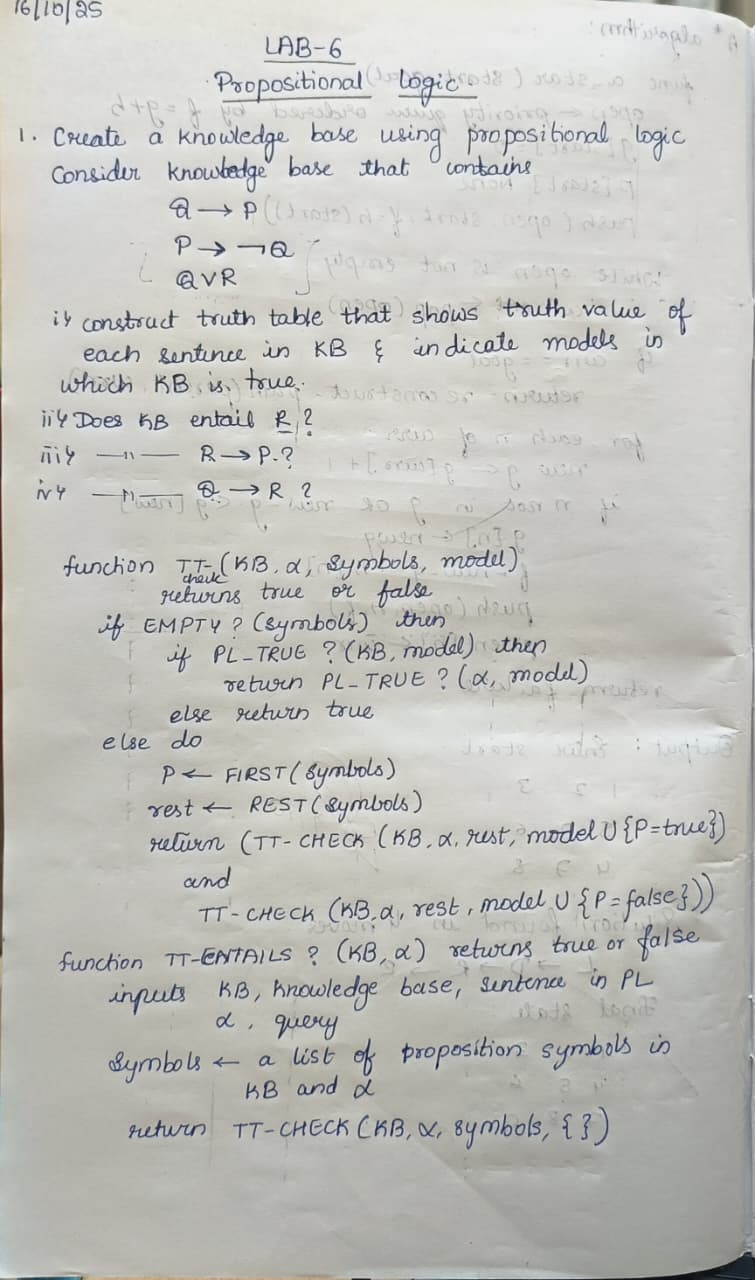 16/10/25
LAB-6
Propositional Logic
1. Create a knowledge base using propositional logic
Consider knowledge base that contains
Q → P
P → ¬Q
Q∨R
i) construct truth table that shows truth value of
each sentence in KB & indicate models in
which KB is true.
ii) Does KB entail R ?
iii) —〃— R → P.?
iv) —〃— Q → R ?
function TT-(KB, α, symbols, model)
check
returns true or false
if EMPTY? (symbols) then
if PL-TRUE ? (KB, model) then
return PL-TRUE ? (α, model)
else return true
else do
P ← FIRST(symbols)
rest ← REST(symbols)
return (TT-CHECK (KB, α, rest, model ∪ {P=true})
and
TT-CHECK (KB, α, rest, model ∪ {P=false}))
function TT-ENTAILS ? (KB, α) returns true or false
inputs KB, knowledge base, sentence in PL
α, query
Symbols ← a list of proposition symbols in
KB and α
return TT-CHECK (KB, α, symbols, { })